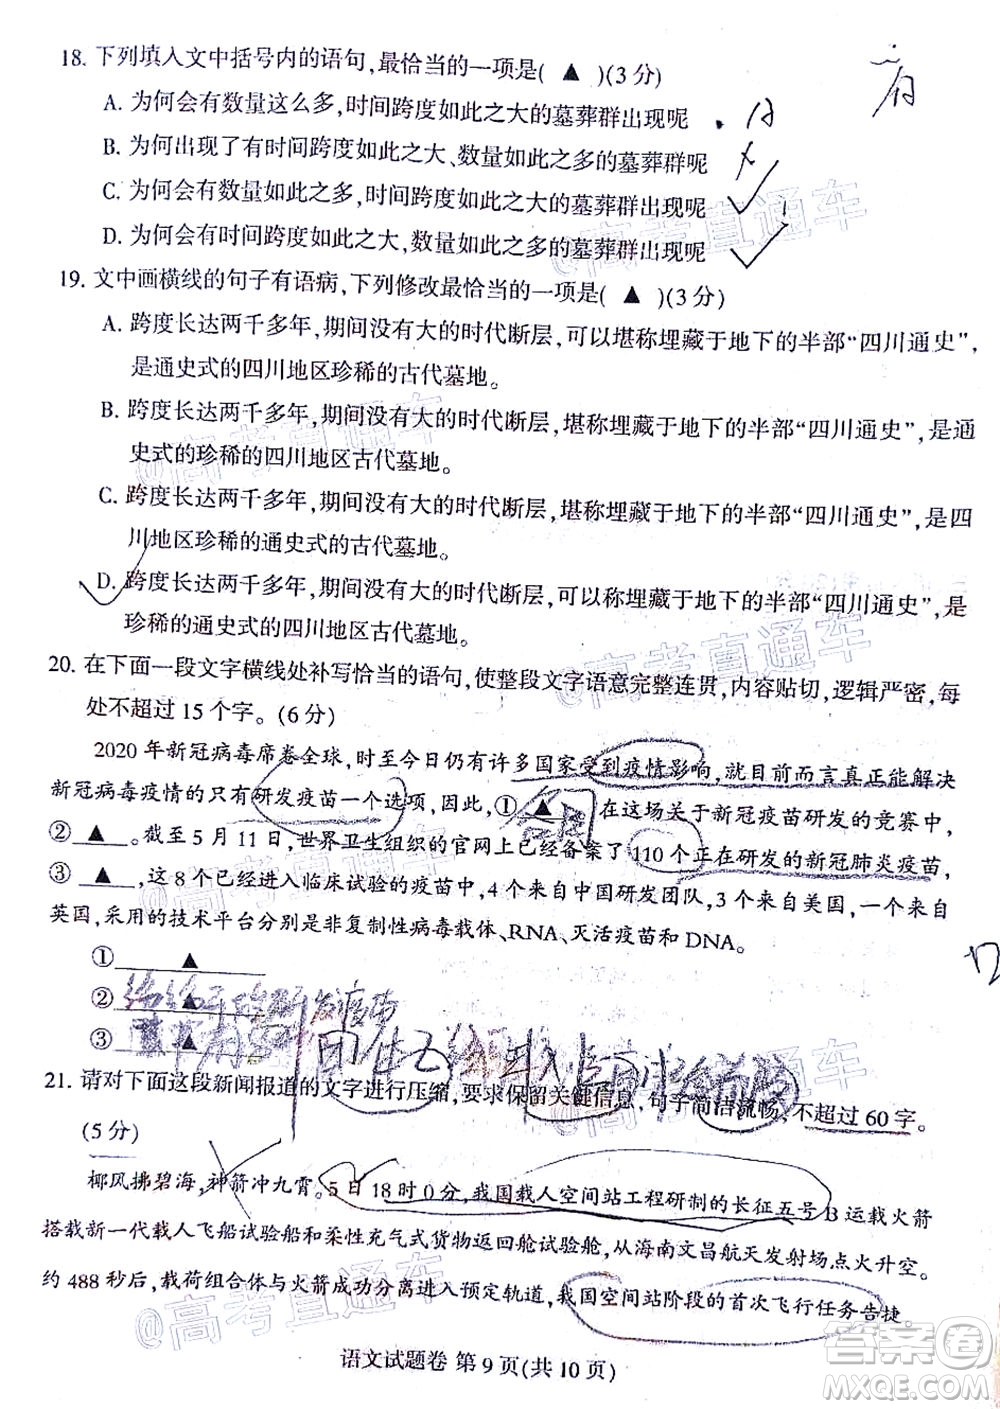 18. 下列填入文中括号内的语句,最恰当的一项是( ▲ )(3分)
A. 为何会有数量这么多,时间跨度如此之大的墓葬群出现呢
B. 为何出现了有时间跨度如此之大、数量如此之多的墓葬群呢
C. 为何会有数量如此之多,时间跨度如此之大的墓葬群出现呢
D. 为何会有时间跨度如此之大,数量如此之多的墓葬群出现呢
19. 文中画横线的句子有语病,下列修改最恰当的一项是( ▲ )(3分)
A. 跨度长达两千多年,期间没有大的时代断层,可以堪称埋藏于地下的半部“四川通史”,
是通史式的四川地区珍稀的古代墓地。
B. 跨度长达两千多年,期间没有大的时代断层,堪称埋藏于地下的半部“四川通史”,是通
史式的珍稀的四川地区古代墓地。
C. 跨度长达两千多年,期间没有大的时代断层,堪称埋藏于地下的半部“四川通史”,是四
川地区珍稀的通史式的古代墓地。
D. 跨度长达两千多年,期间没有大的时代断层,可以称埋藏于地下的半部“四川通史”,是
珍稀的通史式的四川地区古代墓地。
20. 在下面一段文字横线处补写恰当的语句,使整段文字语意完整连贯,内容贴切,逻辑严密,每
处不超过15个字。(6分)
2020年新冠病毒席卷全球,时至今日仍有许多国家受到疫情影响,就目前而言真正能解决
新冠病毒疫情的只有研发疫苗一个选项,因此,① ▲ 。在这场关于新冠疫苗研发的竞赛中,
② ▲ 。截至5月11日,世界卫生组织的官网上已经备案了110个正在研发的新冠肺炎疫苗,
③ ▲ ,这8个已经进入临床试验的疫苗中,4个来自中国研发团队,3个来自美国,一个来自
英国,采用的技术平台分别是非复制性病毒载体、RNA、灭活疫苗和DNA。
① ▲
② ▲
③ ▲
21. 请对下面这段新闻报道的文字进行压缩,要求保留关键信息,句子简洁流畅,不超过60字。
(5分)
椰风拂碧海,神箭冲九霄。5日18时0分,我国载人空间站工程研制的长征五号B运载火箭
搭载新一代载人飞船试验船和柔性充气式货物返回舱试验舱,从海南文昌航天发射场点火升空。
约488秒后,载荷组合体与火箭成功分离进入预定轨道,我国空间站阶段的首次飞行任务告捷。
语文试题卷 第9页(共10页)
@高考直通车
@高考直通车
@高考直通车
@高考直通车
@高考直通车
@高考直通车
答案圈
MXQE.COM